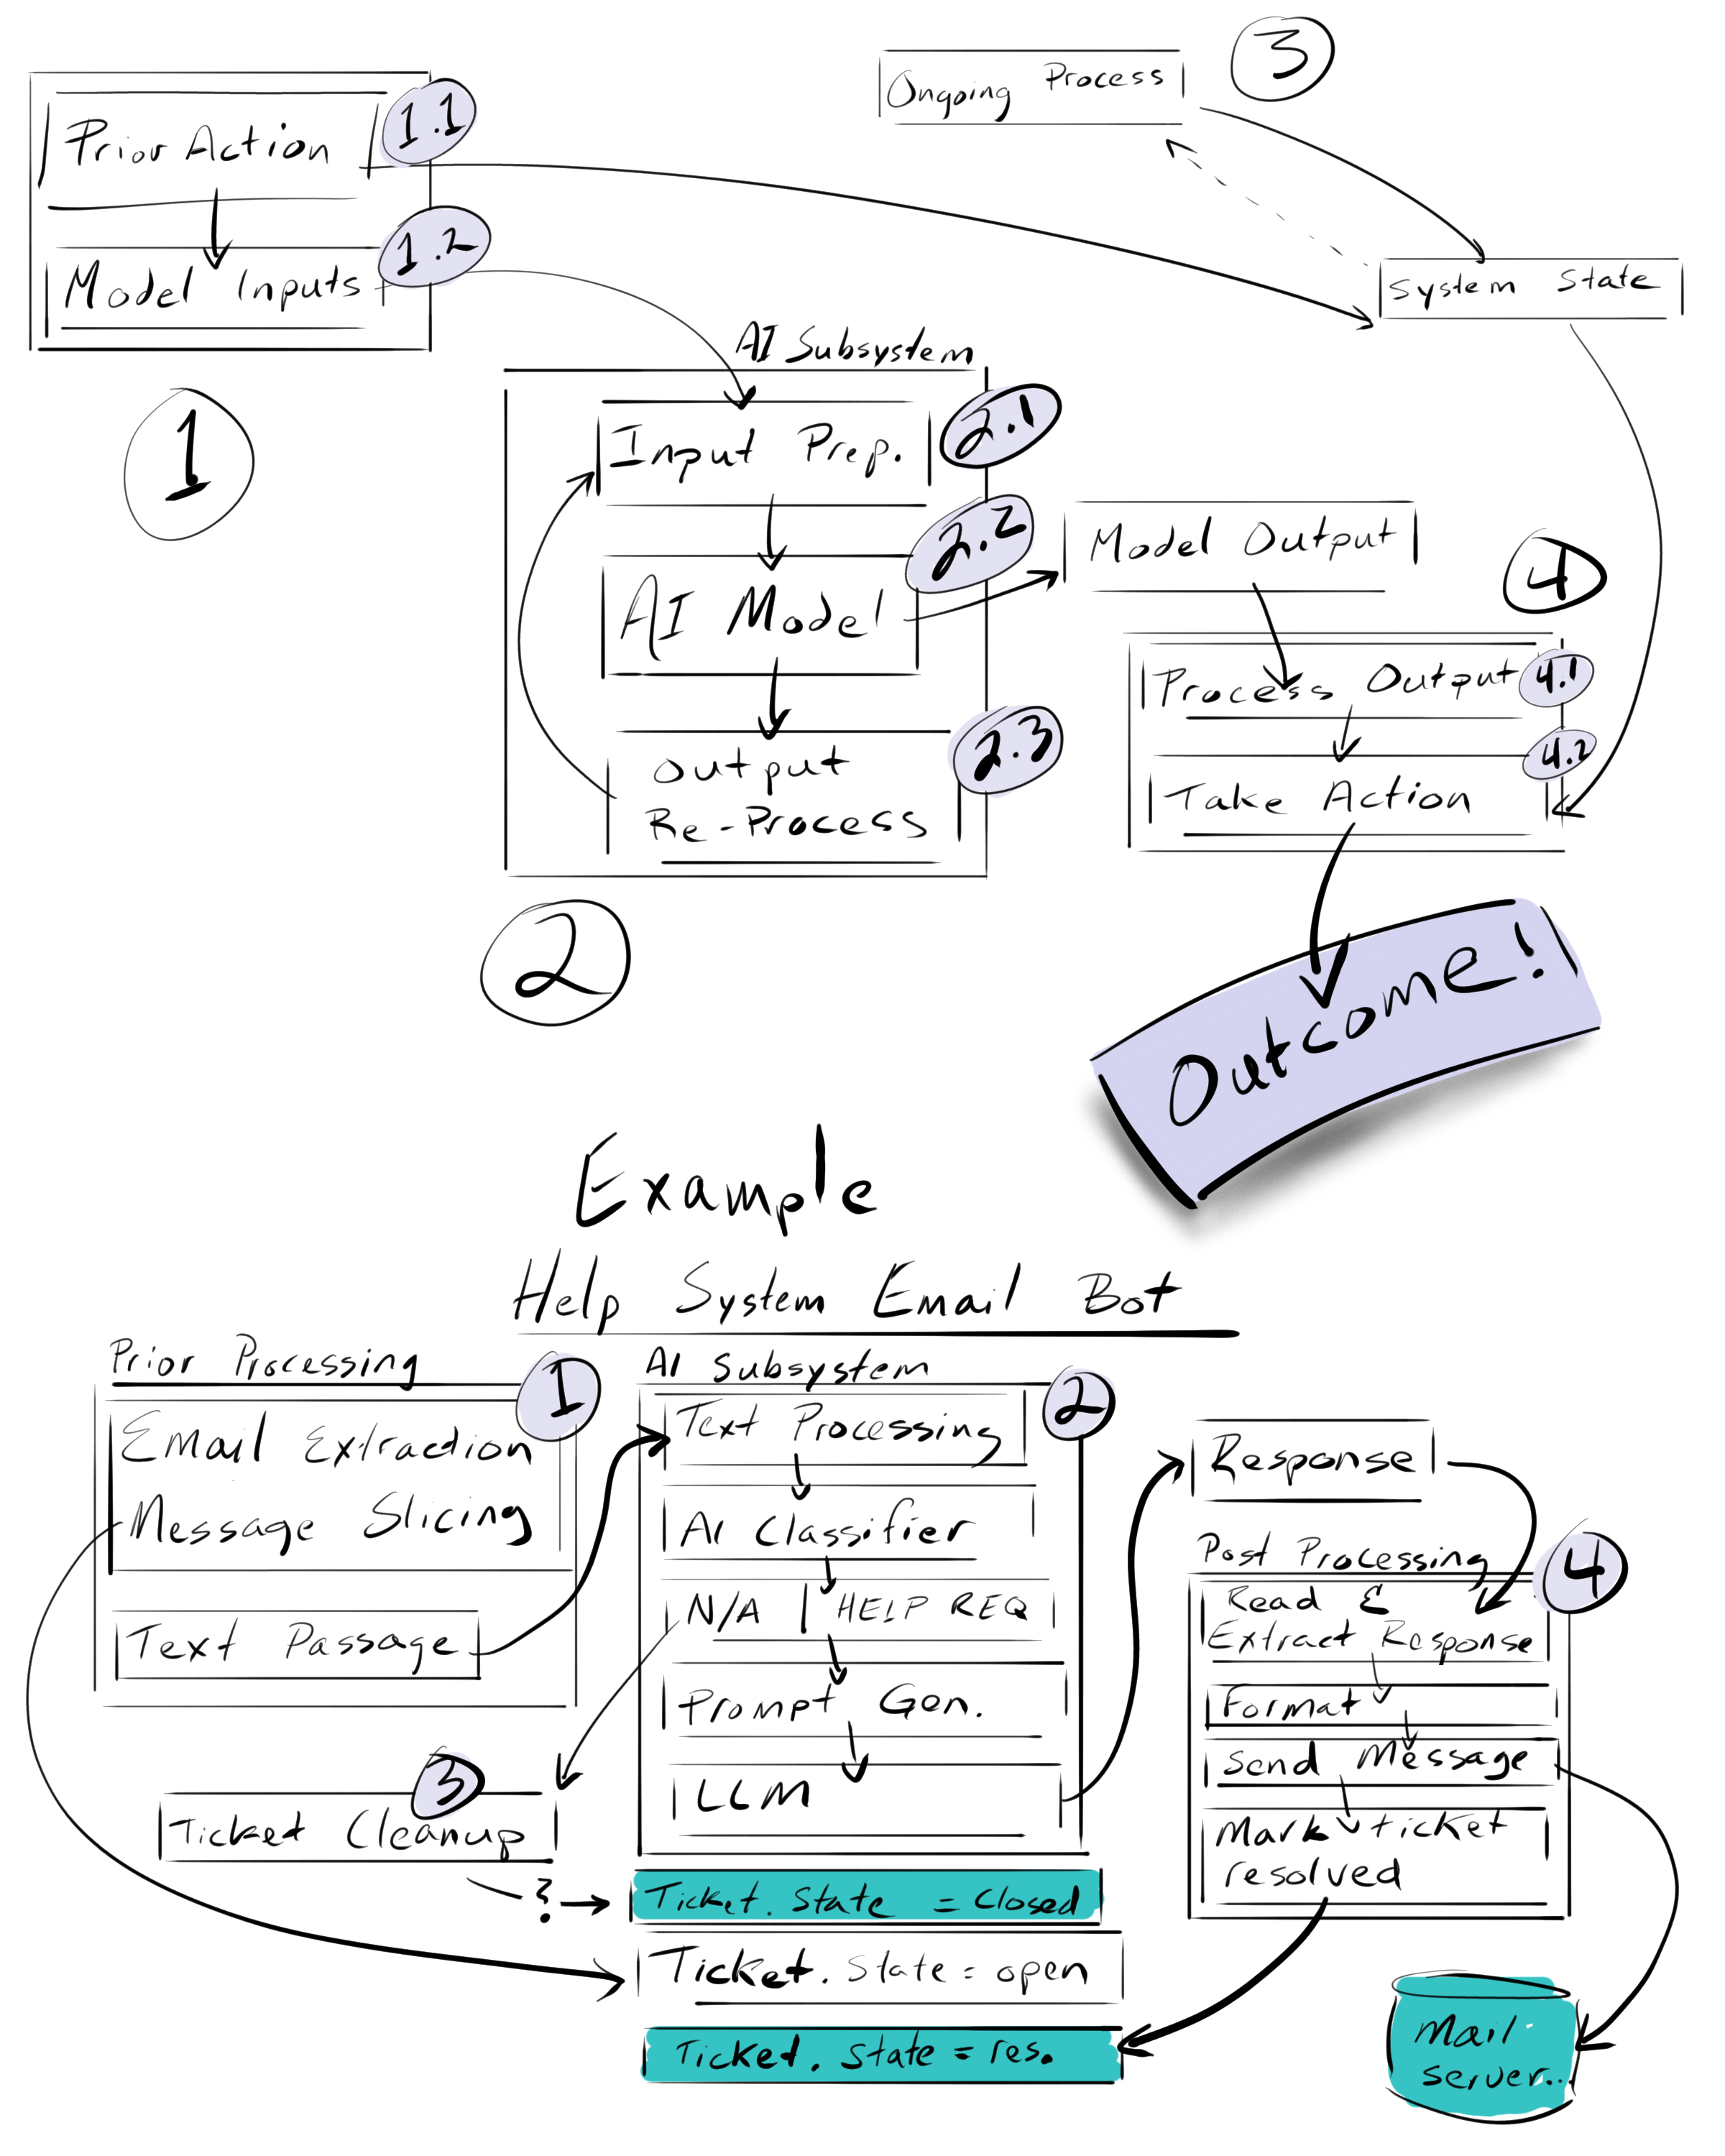 3
Ongoing Process
1.1
Prior Action
1.2
Model Inputs
System State
1
AI Subsystem
2.1
Input Prep.
2.2
AI Model
2.3
Output
Re-Process
2
Model Output
4
Process Output
4.1
4.2
Take Action
Outcome!
Example
Help System Email Bot
Prior Processing
1
Email Extraction
Message Slicing
Text Passage
AI Subsystem
2
Text Processing
AI Classifier
N/A | HELP REQ
Prompt Gen.
LLM
Response
Post Processing
4
Read &
Extract Response
Format
Send Message
Mark ticket
resolved
3
Ticket Cleanup
?
Ticket. State = Closed
Ticket. State = open
Ticket. State = res.
Mail
server...